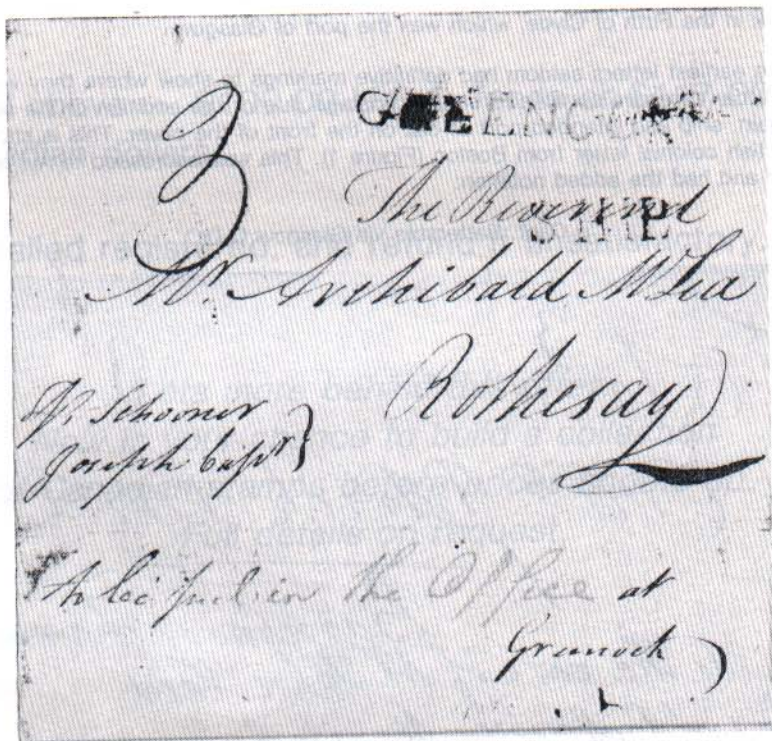 3
GREENOCK
SHIP
The Reverend
Mr. Archibald McLea
Rothesay
Schooner
Joseph
to be put in the Office at
Greenock